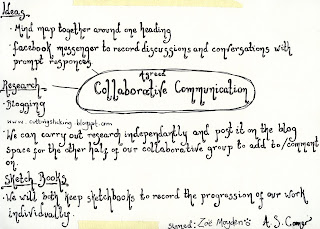 Ideas
· Mind map together around one heading
· Facebook messenger to record discussions and conversations with
prompt responces
Agreed
Collaborative Communication
Research -
· Blogging
· We can carry out research independantly and post it on the blog
space for the other half of our collaborative group to add to/comment
on.
Sketch Books
· We will both keep sketchbooks to record the progression of our work
individually.
signed: Zoë